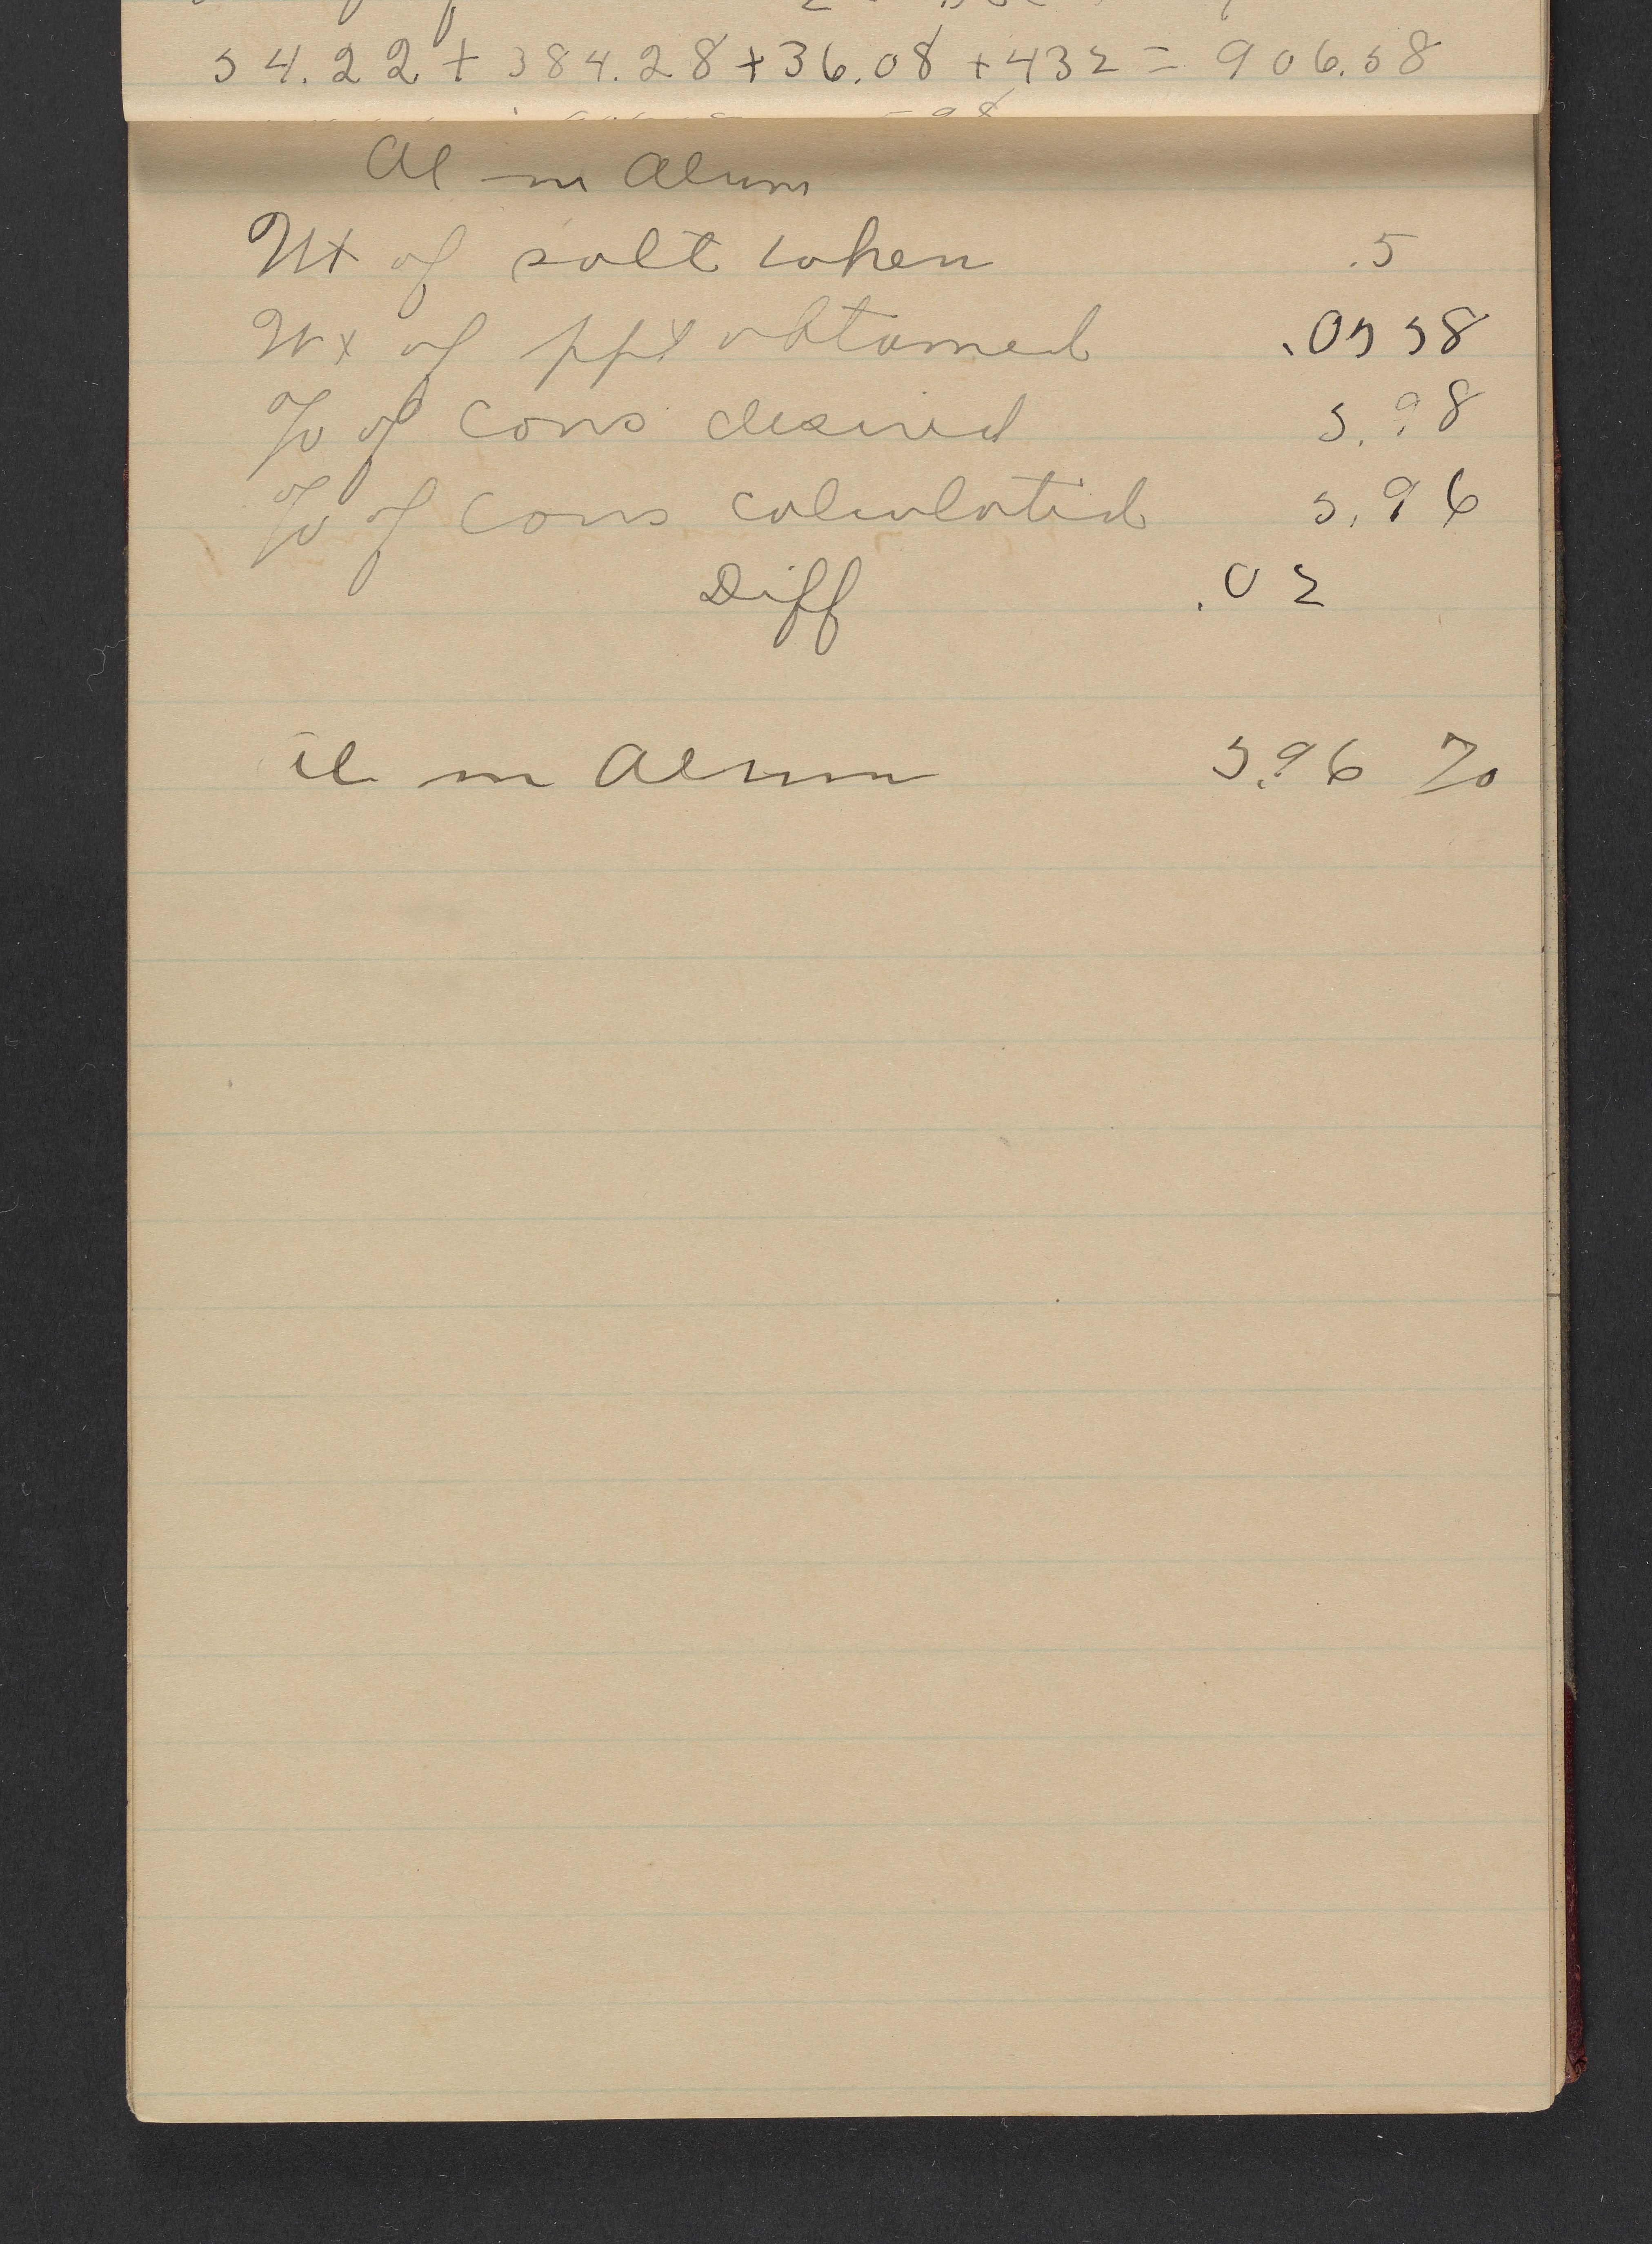 54.22 + 384.28 + 36.08 + 432 = 906.58
Al in Alum
Wt of salt taken .5
Wt of ppt obtained .0558
% of Cons desired 5.98
% of Cons calculated 5.96
Diff .02
Al in Alum 5.96 %